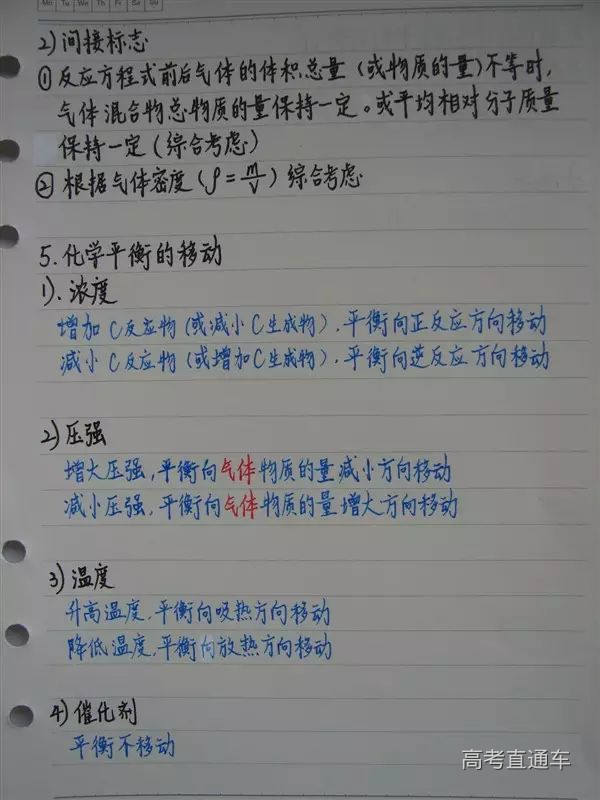 Mn Tu We Th Fr Sa Su
2)间接标志
①反应方程式前后气体的体积总量(或物质的量)不等时,
气体混合物总物质的量保持一定。或平均相对分子质量
保持一定(综合考虑)
②根据气体密度(ρ=m/V)综合考虑
5.化学平衡的移动
1).浓度
增加C反应物(或减小C生成物),平衡向正反应方向移动
减小C反应物(或增加C生成物),平衡向逆反应方向移动
2)压强
增大压强,平衡向气体物质的量减小方向移动
减小压强,平衡向气体物质的量增大方向移动
3)温度
升高温度,平衡向吸热方向移动
降低温度,平衡向放热方向移动
4)催化剂
平衡不移动
高考直通车